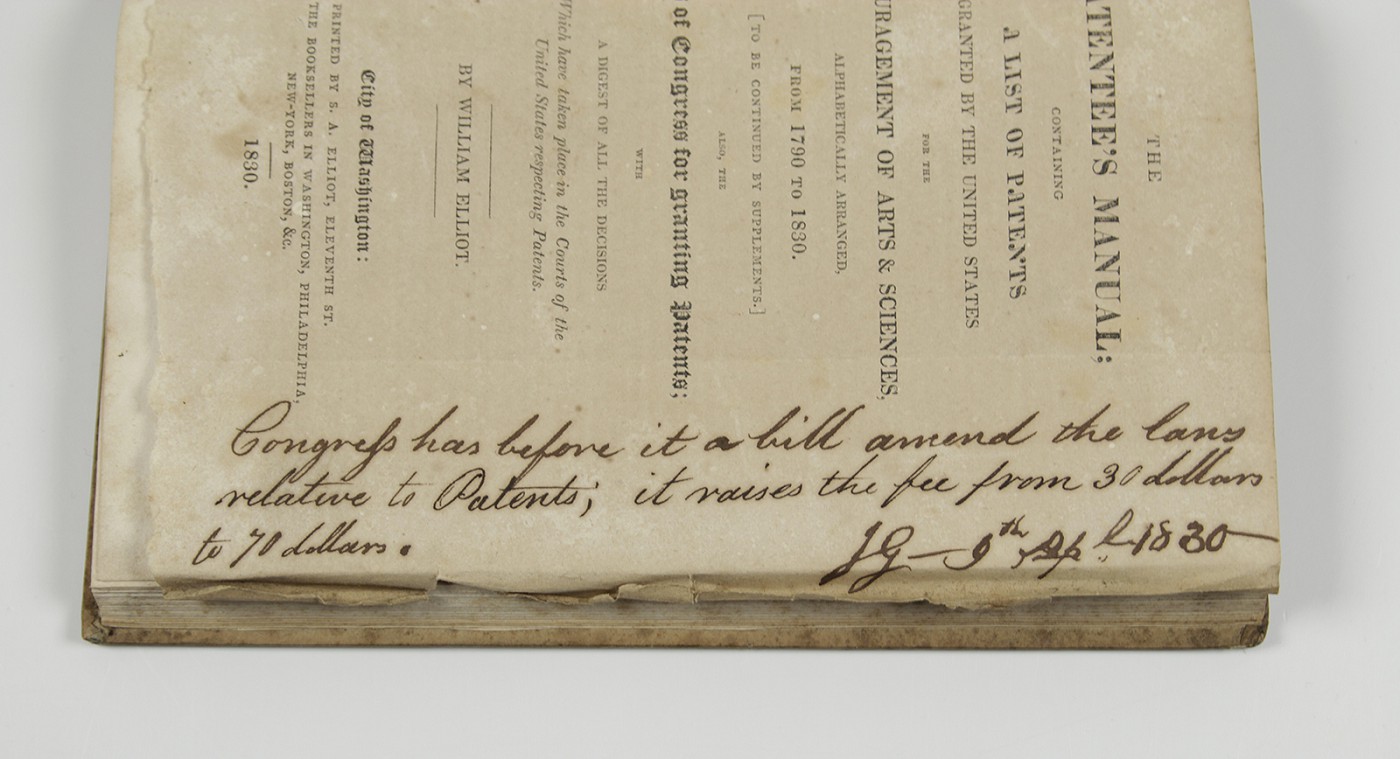 THE
ATENTEE'S MANUAL;
CONTAINING
A LIST OF PATENTS
GRANTED BY THE UNITED STATES
FOR THE
URAGEMENT OF ARTS & SCIENCES,
ALPHABETICALLY ARRANGED,
FROM 1790 TO 1830.
[TO BE CONTINUED BY SUPPLEMENTS.]
ALSO, THE
of Congress for granting Patents;
WITH
A DIGEST OF ALL THE DECISIONS
Which have taken place in the Courts of the
United States respecting Patents.
BY WILLIAM ELLIOT.
City of Washington:
PRINTED BY S. A. ELLIOT, ELEVENTH ST.
THE BOOKSELLERS IN WASHINGTON, PHILADELPHIA,
NEW-YORK, BOSTON, &c.
1830.
Congreſs has before it a bill amend the laws
relative to Patents; it raises the fee from 30 dollars
to 70 dollars.
JG — 9th Apl 1830